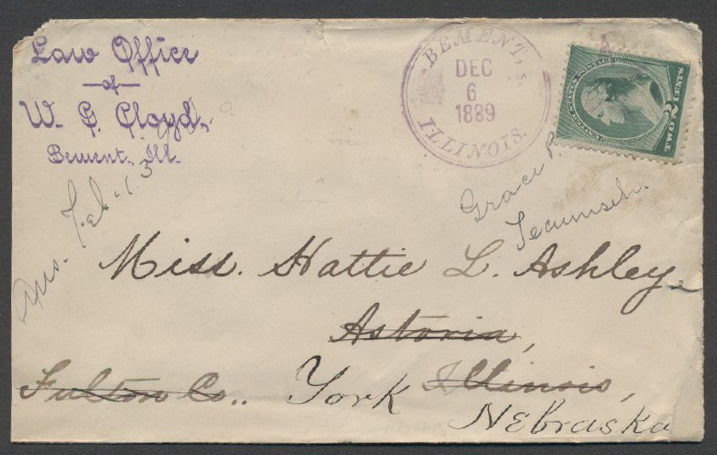 Law Office
of
W. G. Cloyd,
Bement, Ill.
BEMENT,
DEC
6
1889
ILLINOIS.
UNITED STATES POSTAGE
TWO 2 CENTS
Ans. Feb. 13
Grace P.
Tecumseh.
Miss. Hattie L. Ashley
Astoria,
Fulton Co.. York Illinois,
Nebraska